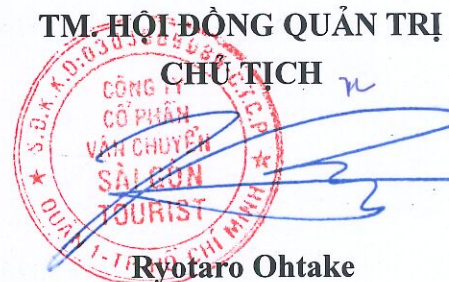 TM. HỘI ĐỒNG QUẢN TRỊ
CHỦ TỊCH
CÔNG TY
CỔ PHẦN
VẬN CHUYỂN
SÀI GÒN
TOURIST
QUẬN 1-TP HỒ CHÍ MINH
Ryotaro Ohtake